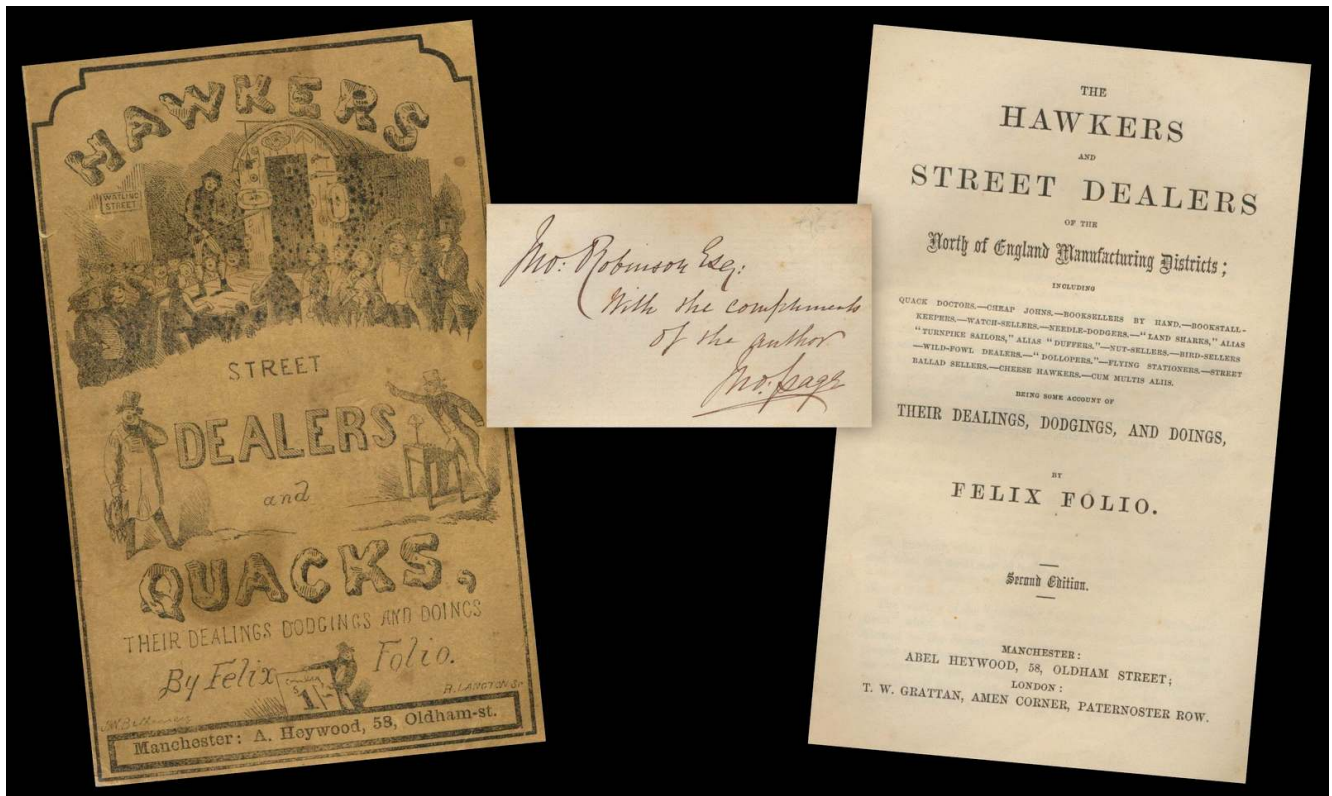 HAWKERS
WATLING
STREET
STREET
DEALERS
and
QUACKS,
THEIR DEALINGS DODGINGS AND DOINGS
By Felix Folio.
1/-
R. LANGTON Sc
Manchester: A. Heywood, 58, Oldham-st.
Jno: Robinson Esq:
With the compliments
of the author
Jno. Page
THE
HAWKERS
AND
STREET DEALERS
OF THE
North of England Manufacturing Districts;
INCLUDING
QUACK DOCTORS.—CHEAP JOHNS.—BOOKSELLERS BY HAND.—BOOKSTALL-
KEEPERS.—WATCH-SELLERS.—NEEDLE-DODGERS.—"LAND SHARKS," ALIAS
"TURNPIKE SAILORS," ALIAS "DUFFERS."—NUT-SELLERS.—BIRD-SELLERS
—WILD-FOWL DEALERS.—"DOLLOPERS."—FLYING STATIONERS.—STREET
BALLAD SELLERS.—CHEESE HAWKERS.—CUM MULTIS ALIIS.
BEING SOME ACCOUNT OF
THEIR DEALINGS, DODGINGS, AND DOINGS,
BY
FELIX FOLIO.
Second Edition.
MANCHESTER:
ABEL HEYWOOD, 58, OLDHAM STREET;
LONDON:
T. W. GRATTAN, AMEN CORNER, PATERNOSTER ROW.